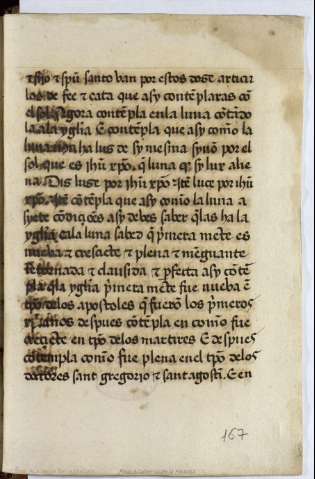 ⁊ fijo ⁊ spũ santo van por estos doze articu
los de fee ⁊ cata que asy contẽplaras cõ
el sol Agora contẽpla en la luna cõtãdo
la a la yglia E contẽpla que asy com̃o la
luna nõ ha lus de sy mesma synõ por el
sol que es ihũ xp̃o. q̃ luna q̃ sy lux alie
na. Dis luse por ihũ xp̃o ⁊ luce por ihũ
xp̃o. Itẽ cõtẽpla que asy com̃o la luna a
syete cõdiçiões asy deves saber q̃ las ha la
yglia Ca la luna sabed q̃ p̃mera mẽte es
nueba ⁊ cresciẽte ⁊ plena ⁊ mẽguante
⁊ tornada ⁊ clausida ⁊ p̃fetta asy cõtẽ
pla q̃ la yglia p̃mera mẽte fue nueba ẽ
tp̃o de los apostoles q̃ fuerõ los p̃meros
xp̃ianos despues cõtẽpla en com̃o fue
creçiẽte en tp̃o de los martires E despues
cõtẽpla com̃o fue plena en el tp̃o de los
doctores sant gregorio ⁊ sant agosti. E en
167